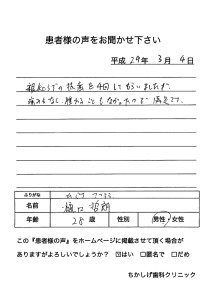 患者様の声をお聞かせ下さい
平成 29年 3月 4日
親知らずの抜歯を4回してもらいましたが、
痛みもなく、腫れることもなかったので満足です。
ふりがな
名前 樋口 哲朗
年齢 28歳 性別 男性 女性
この『患者様の声』をホームページに掲載させて頂く場合が
ありますがよろしいでしょうか？ ☑はい □匿名で □だめ
ちかしげ歯科クリニック